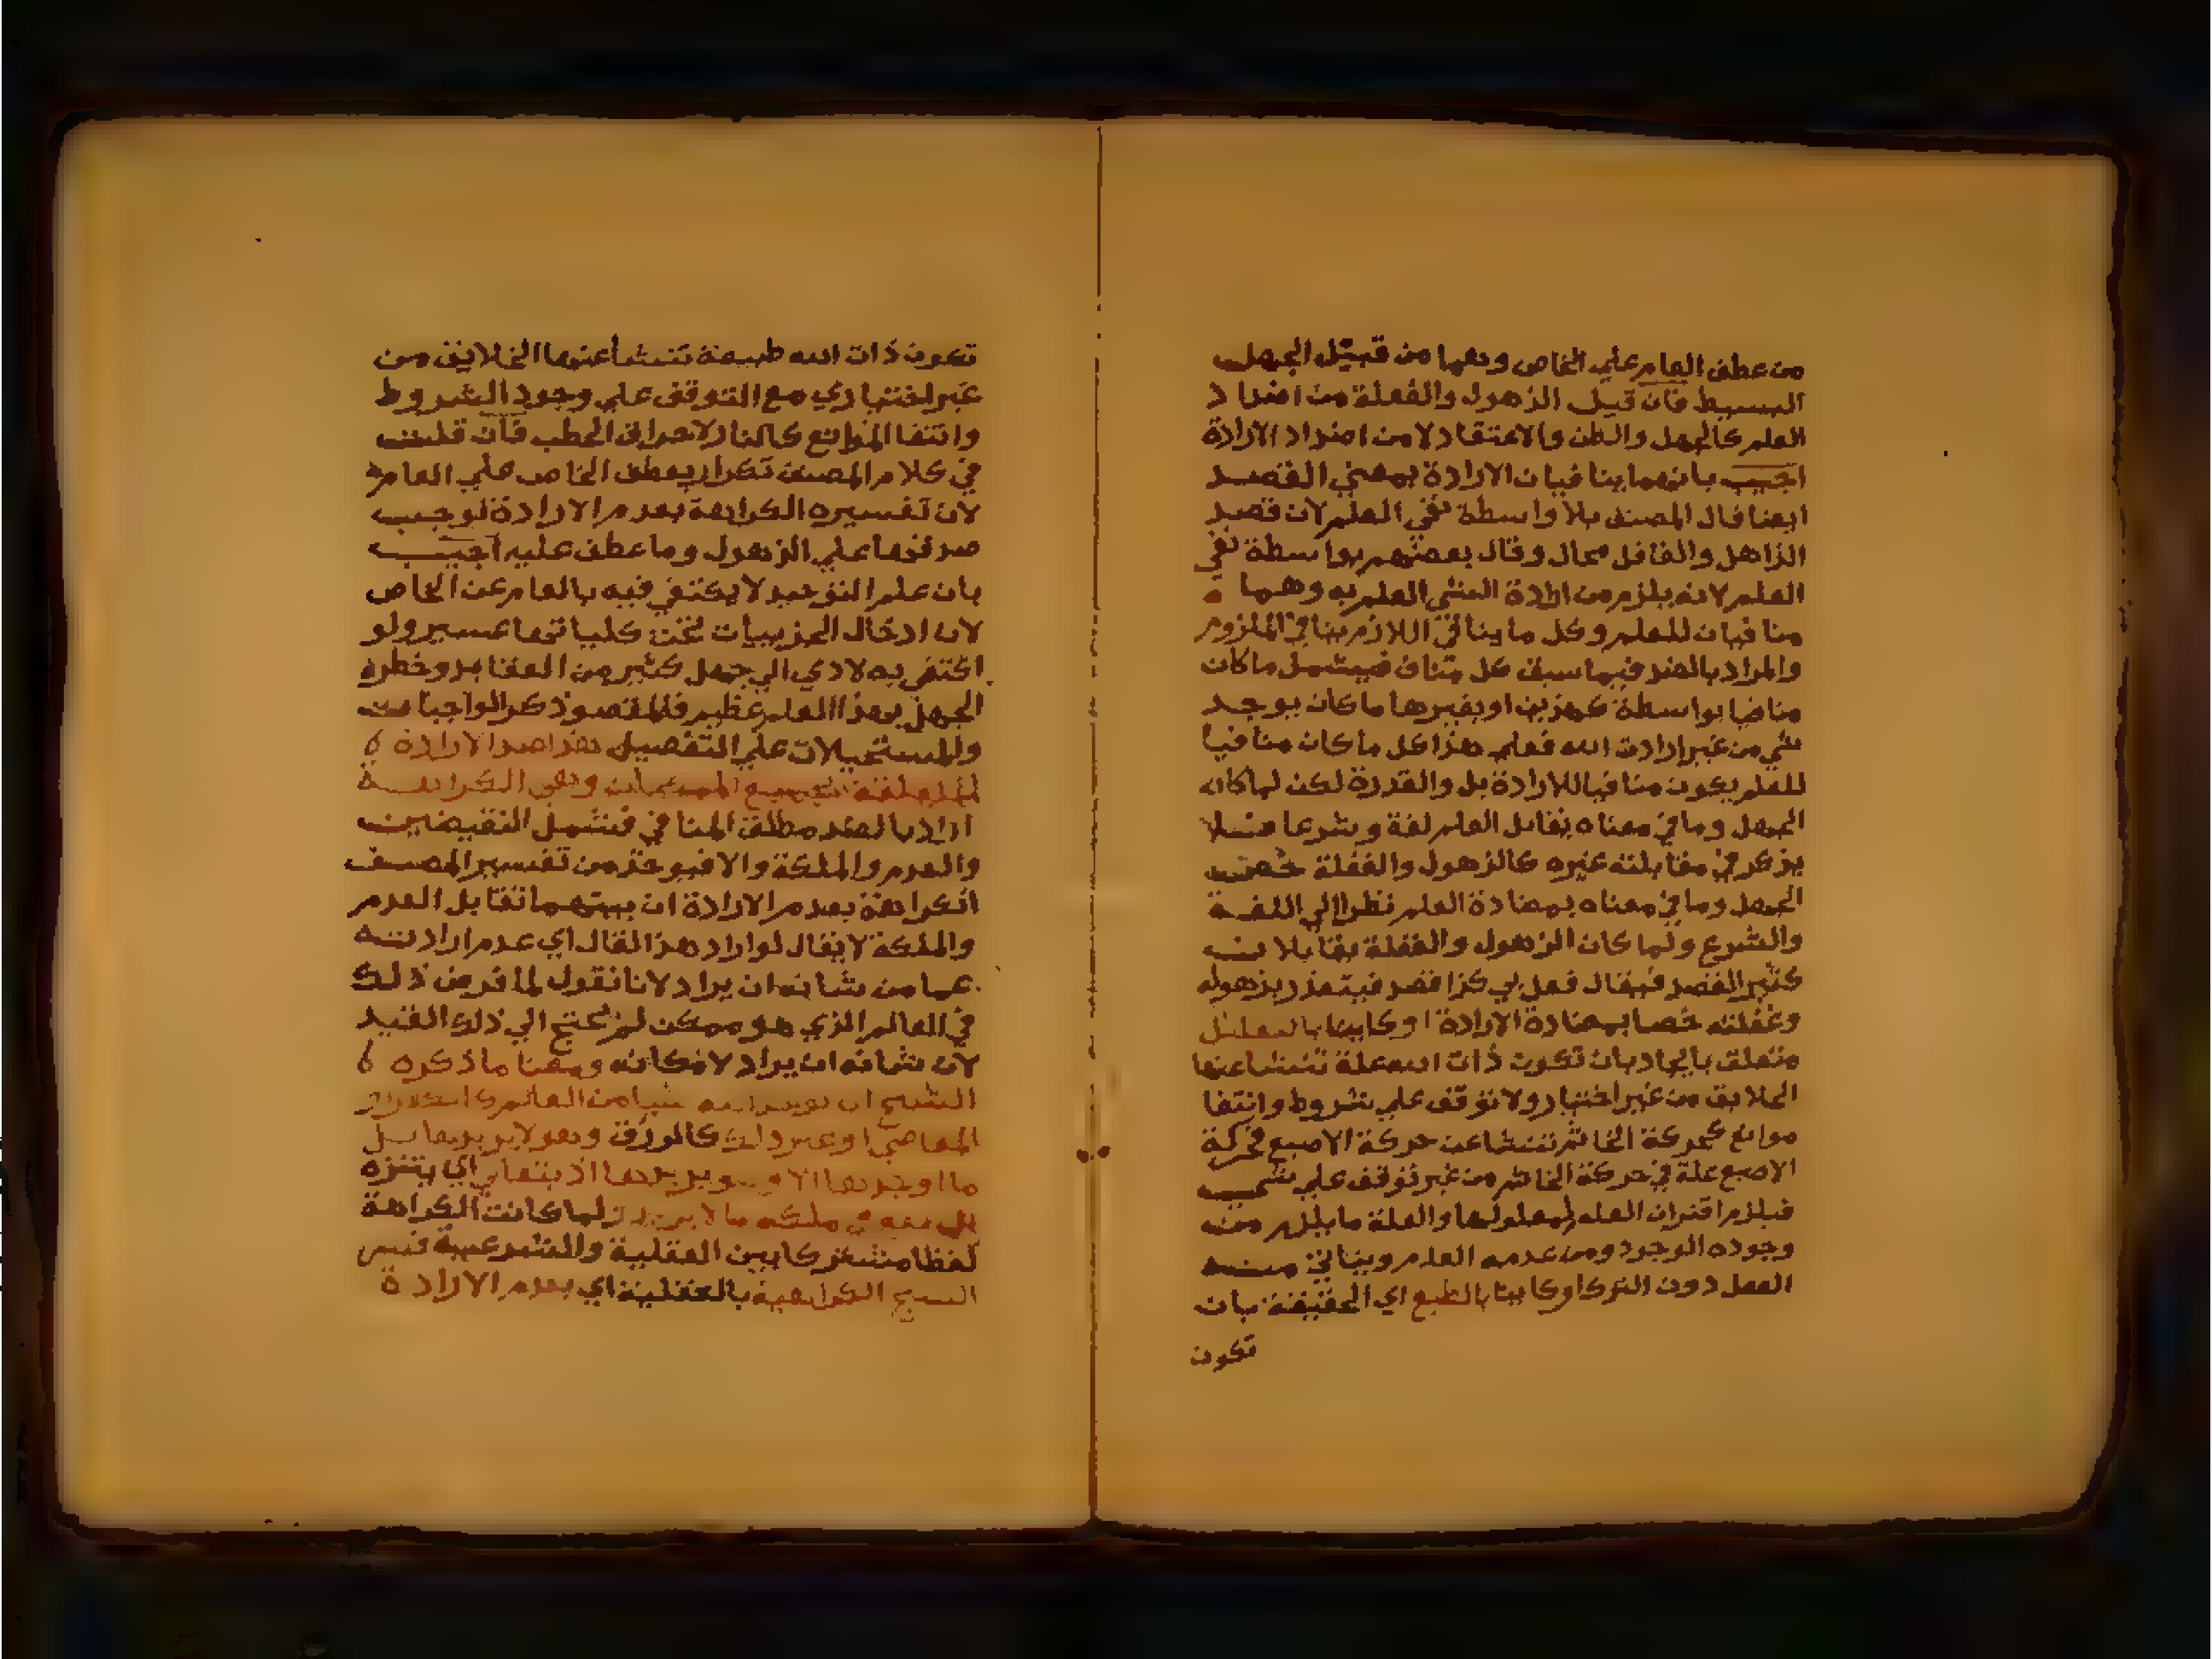 من عطف العام علي الخاص وهما من قبيل الجهل
البسيط فان قيل الزهول والغفلة من اضداد
العلم كالجهل والظن والاعتقاد لا من اضداد الارادة
اجيب بانهما ينافيان الارادة بمعني القصد
ايضا قال المصنف بلا واسطة نفي العلم لان قصد
الزاهل والغافل محال وقال بعضهم بواسطة نفي
العلم لانه يلزم من ارادة الشي العلم به وهما
منافيان للعلم وكل ما ينافي اللازم ينافي الملزوم
والمراد بالضد فيما سبق كل مناف فيشمل ما كان
منافيا بواسطة كهزين او بغيرها ما كان يوجد
شي من غير ارادت الله فعلم هذا كل ما كان منافيا
للعلم يكون منافيا للارادة بل والقدرة لكن لما كان
الجهل وما في معناه يقابل العلم لغة وشرعا فلا
يزكر في مقابلته غيره كالزهول والغفلة خصت
الجهل وما في معناه بمضادة العلم نظرا الي اللغة
والشرع ولما كان الزهول والغفلة يقابلان
كثير القصد فيقال فعل لي كزا قصد فيتعذر بزهوله
وغفلته خصا بمضادة الارادة او كاينا بالتعليل
متعلق بايجاد بان تكون ذات الله علة تنشا عنها
الخلايق من غير اختيار ولا توقف علي شروط وانتفا
موانع كحركة الخاتم تنشا عن حركة الاصبع فحركة
الاصبع علة في حركة الخاتم من غير توقف علي شي
فيلزم اقتران العلة لمعلولها والعلة ما يلزم من
وجوده الوجود ومن عدمه العدم وينافي منه
الفعل دون الترك او كاينا بالطبع اي الحقيقة بان
تكون
تكون ذات الله طبيعة تنشا عنها الخلايق من
غير اختياري مع التوقف علي وجود الشروط
وانتفا الموانع كالنار لاحراق الحطب فان قلت
في كلام المصنف تكرار يعطف الخاص علي العام
لان تفسيره الكراهة بعدم الارادة توجب
صدقها علي الزهول وما عطف عليه اجيب
بان علم التوحيد لا يكتفي فيه بالعام عن الخاص
لان ادخال الجزييات تحت كلياتها عسير ولو
اكتفي به لادي الي جهل كثير من العقايد وخطره
الجهل بهذا العلم عظيم فالمقصود ذكر الواجبات
والمستحيلات علي التفصيل هذا ضد الارادة
المتعلقة بجميع الممكنات وهي الكراهة
اراد بالضد مطلق المنافي فتشمل النقيضين
والعدم والملكة والا فيوخذ من تفسير المصنف
الكراهة بعدم الارادة ان بينهما تقابل العدم
والملكة لا يقال لو اراد هذا لقال اي عدم ارادته
عما من شانه ان يراد لانا نقول لما فرض ذلك
في العالم الذي هو ممكن لم يحتج الي ذلك القيد
لان شانه ان يراد لامكانه ومعنا ما ذكره
الشيخ ان شيا من العالم
المعاصي او غير ذلك كالرزق وهو لا يريدها بل
ما اوجدها الا وهو يريدها اذ يتعالي اي يتنزه
ان يقع في ملكه ما لا يريد ولما كانت الكراهة
لفظا مشتركا بين العقلية والشرعية فسر
الشيخ الكراهية بالعقلية اي بعدم الارادة